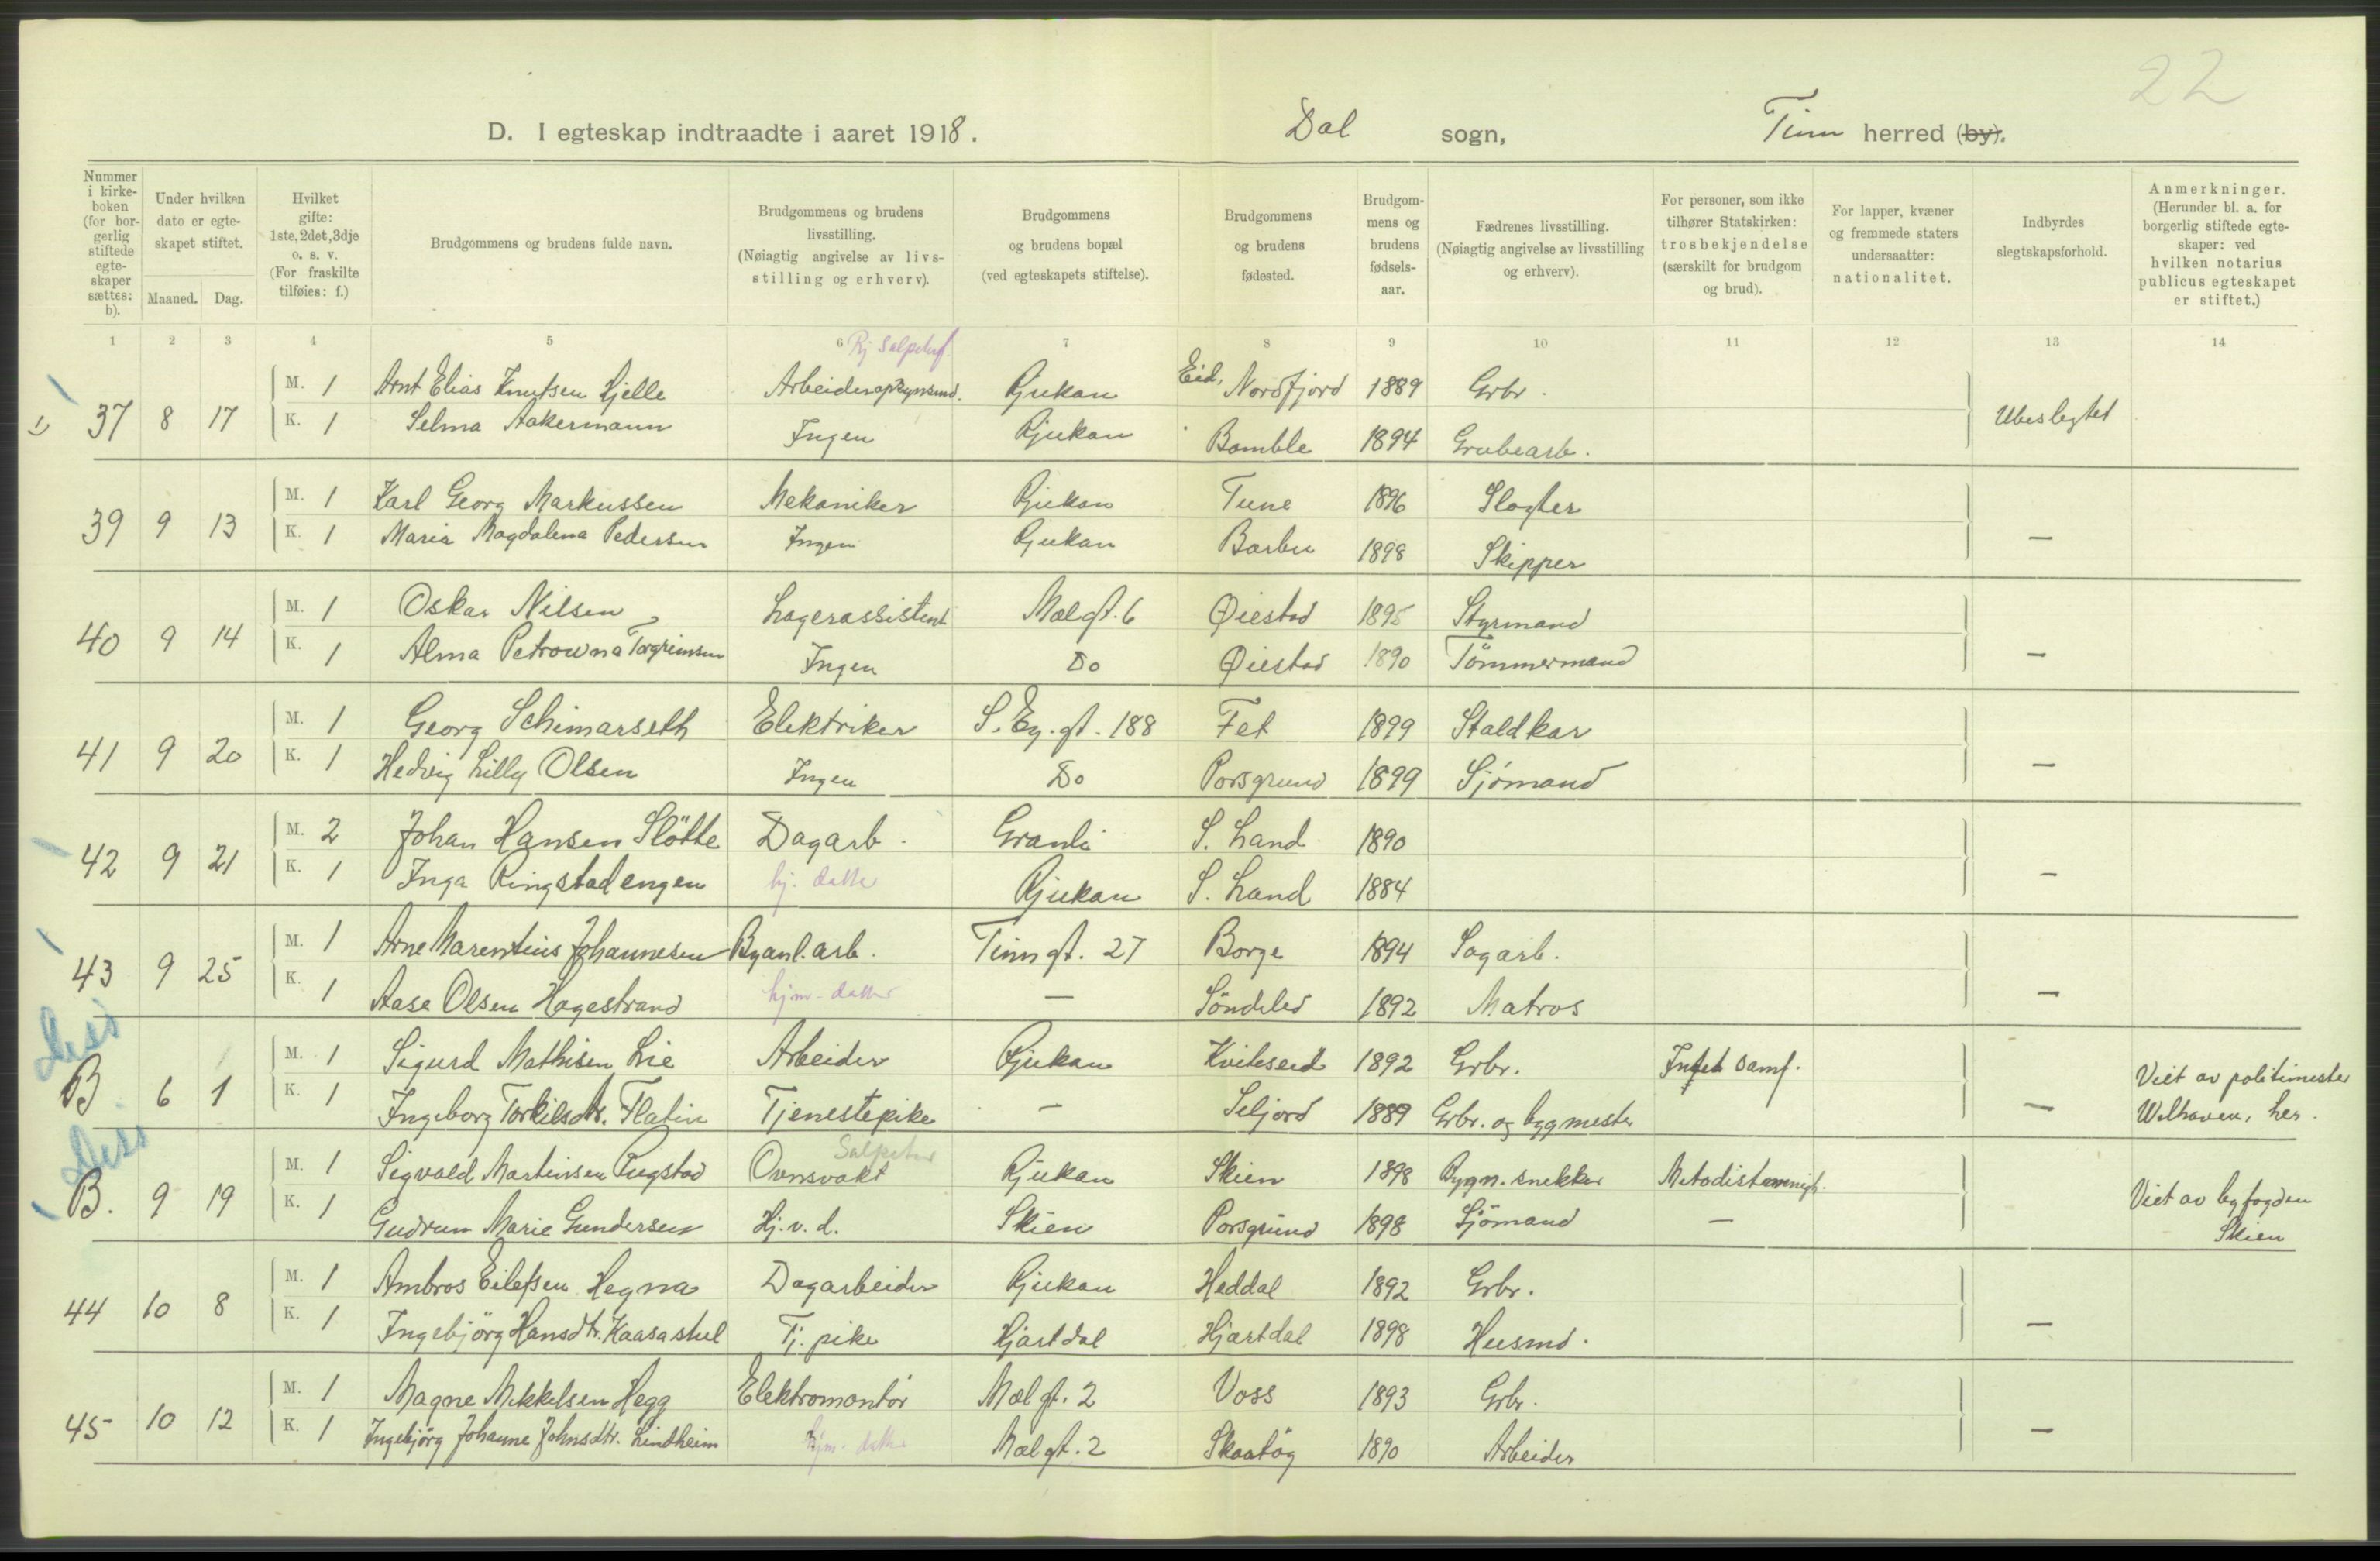 22
D. I egteskap indtraadte i aaret 1918. Dal sogn, Tinn herred (by).
Nummer i kirke-boken (for bor-gerlig stiftede egte-skaper sættes: b).
Under hvilken dato er egte-skapet stiftet.
Maaned. Dag.
Hvilket gifte: 1ste, 2det, 3dje o. s. v. (For fraskilte tilføies: f.)
Brudgommens og brudens fulde navn.
Brudgommens og brudens livsstilling. (Nøiagtig angivelse av livs-stilling og erhverv).
Brudgommens og brudens bopæl (ved egteskapets stiftelse).
Brudgommens og brudens fødested.
Brudgom-mens og brudens fødsels-aar.
Fædrenes livsstilling. (Nøiagtig angivelse av livsstilling og erhverv).
For personer, som ikke tilhører Statskirken: trosbekjendelse (særskilt for brudgom og brud).
For lapper, kvæner og fremmede staters undersaatter: nationalitet.
Indbyrdes slegtskapsforhold.
Anmerkninger. (Herunder bl. a. for borgerlig stiftede egte-skaper: ved hvilken notarius publicus egteskapet er stiftet.)
1 2 3 4 5 6 7 8 9 10 11 12 13 14
37 8 17 M. 1 Arnt Elias Knutsen Hjelle Arbeideropsynsmd. Rjukan Eid, Nordfjord 1889 Grbr.
K. 1 Selma Aakermann Ingen Rjukan Bamble 1894 Grubearb. Ubeslegtet
39 9 13 M. 1 Karl Georg Markussen Mekaniker Rjukan Tune 1896 Slagter
K. 1 Maria Magdalena Pedersen Ingen Rjukan Barbu 1898 Skipper —
40 9 14 M. 1 Oskar Nilsen Lagerassistent Mælgt. 6 Øiestad 1895 Styrmand
K. 1 Alma Petrowna Torgrimsen Ingen Do Øiestad 1890 Tömmermand —
41 9 20 M. 1 Georg Schimarseth Elektriker S. Eg. gt. 188 Fet 1899 Staldkar
K. 1 Hedvig Lilly Olsen Ingen Do Porsgrund 1899 Sjömand —
42 9 21 M. 2 Johan Hansen Slötte Dagarb. Granli S. Land 1890
K. 1 Inga Ringstadengen hj. datter Rjukan S. Land 1884 —
43 9 25 M. 1 Arne Marentius Johannesen Byanl. arb. Tinngt. 27 Borge 1894 Sagarb.
K. 1 Aase Olsen Hagestrand hjm-datter — Söndeled 1892 Matros —
B 6 1 M. 1 Sigurd Mathisen Lie Arbeider Rjukan Kviteseid 1892 Grbr. Intet samf. Viet av politimester
K. 1 Ingeborg Torkilsdtr. Flatin Tjenestepike — Seljord 1889 Grbr. og byggmester — Welhaven, her.
Salpeter
B. 9 19 M. 1 Sigvald Martinsen Rugstad Ovnsvakt Rjukan Skien 1898 Bygn. snekker Metodistmenigh. Viet av byfogden
K. 1 Gudrun Marie Gundersen Hj. v. d. Skien Porsgrund 1898 Sjömand — Skien
44 10 8 M. 1 Ambros Eilefsen Hegna Dagarbeider Rjukan Heddal 1892 Grbr.
K. 1 Ingebjörg Hansdtr. Kaasastul Tj. pike Hjartdal Hjartdal 1898 Husmd. —
45 10 12 M. 1 Magne Mikkelsen Hegg Elektromontör Mælgt. 2 Voss 1893 Grbr.
K. 1 Ingebjörg Johanne Johnsdtr. Lindheim hjm-datter Mælgt. 2 Skaatøy 1890 Arbeider —